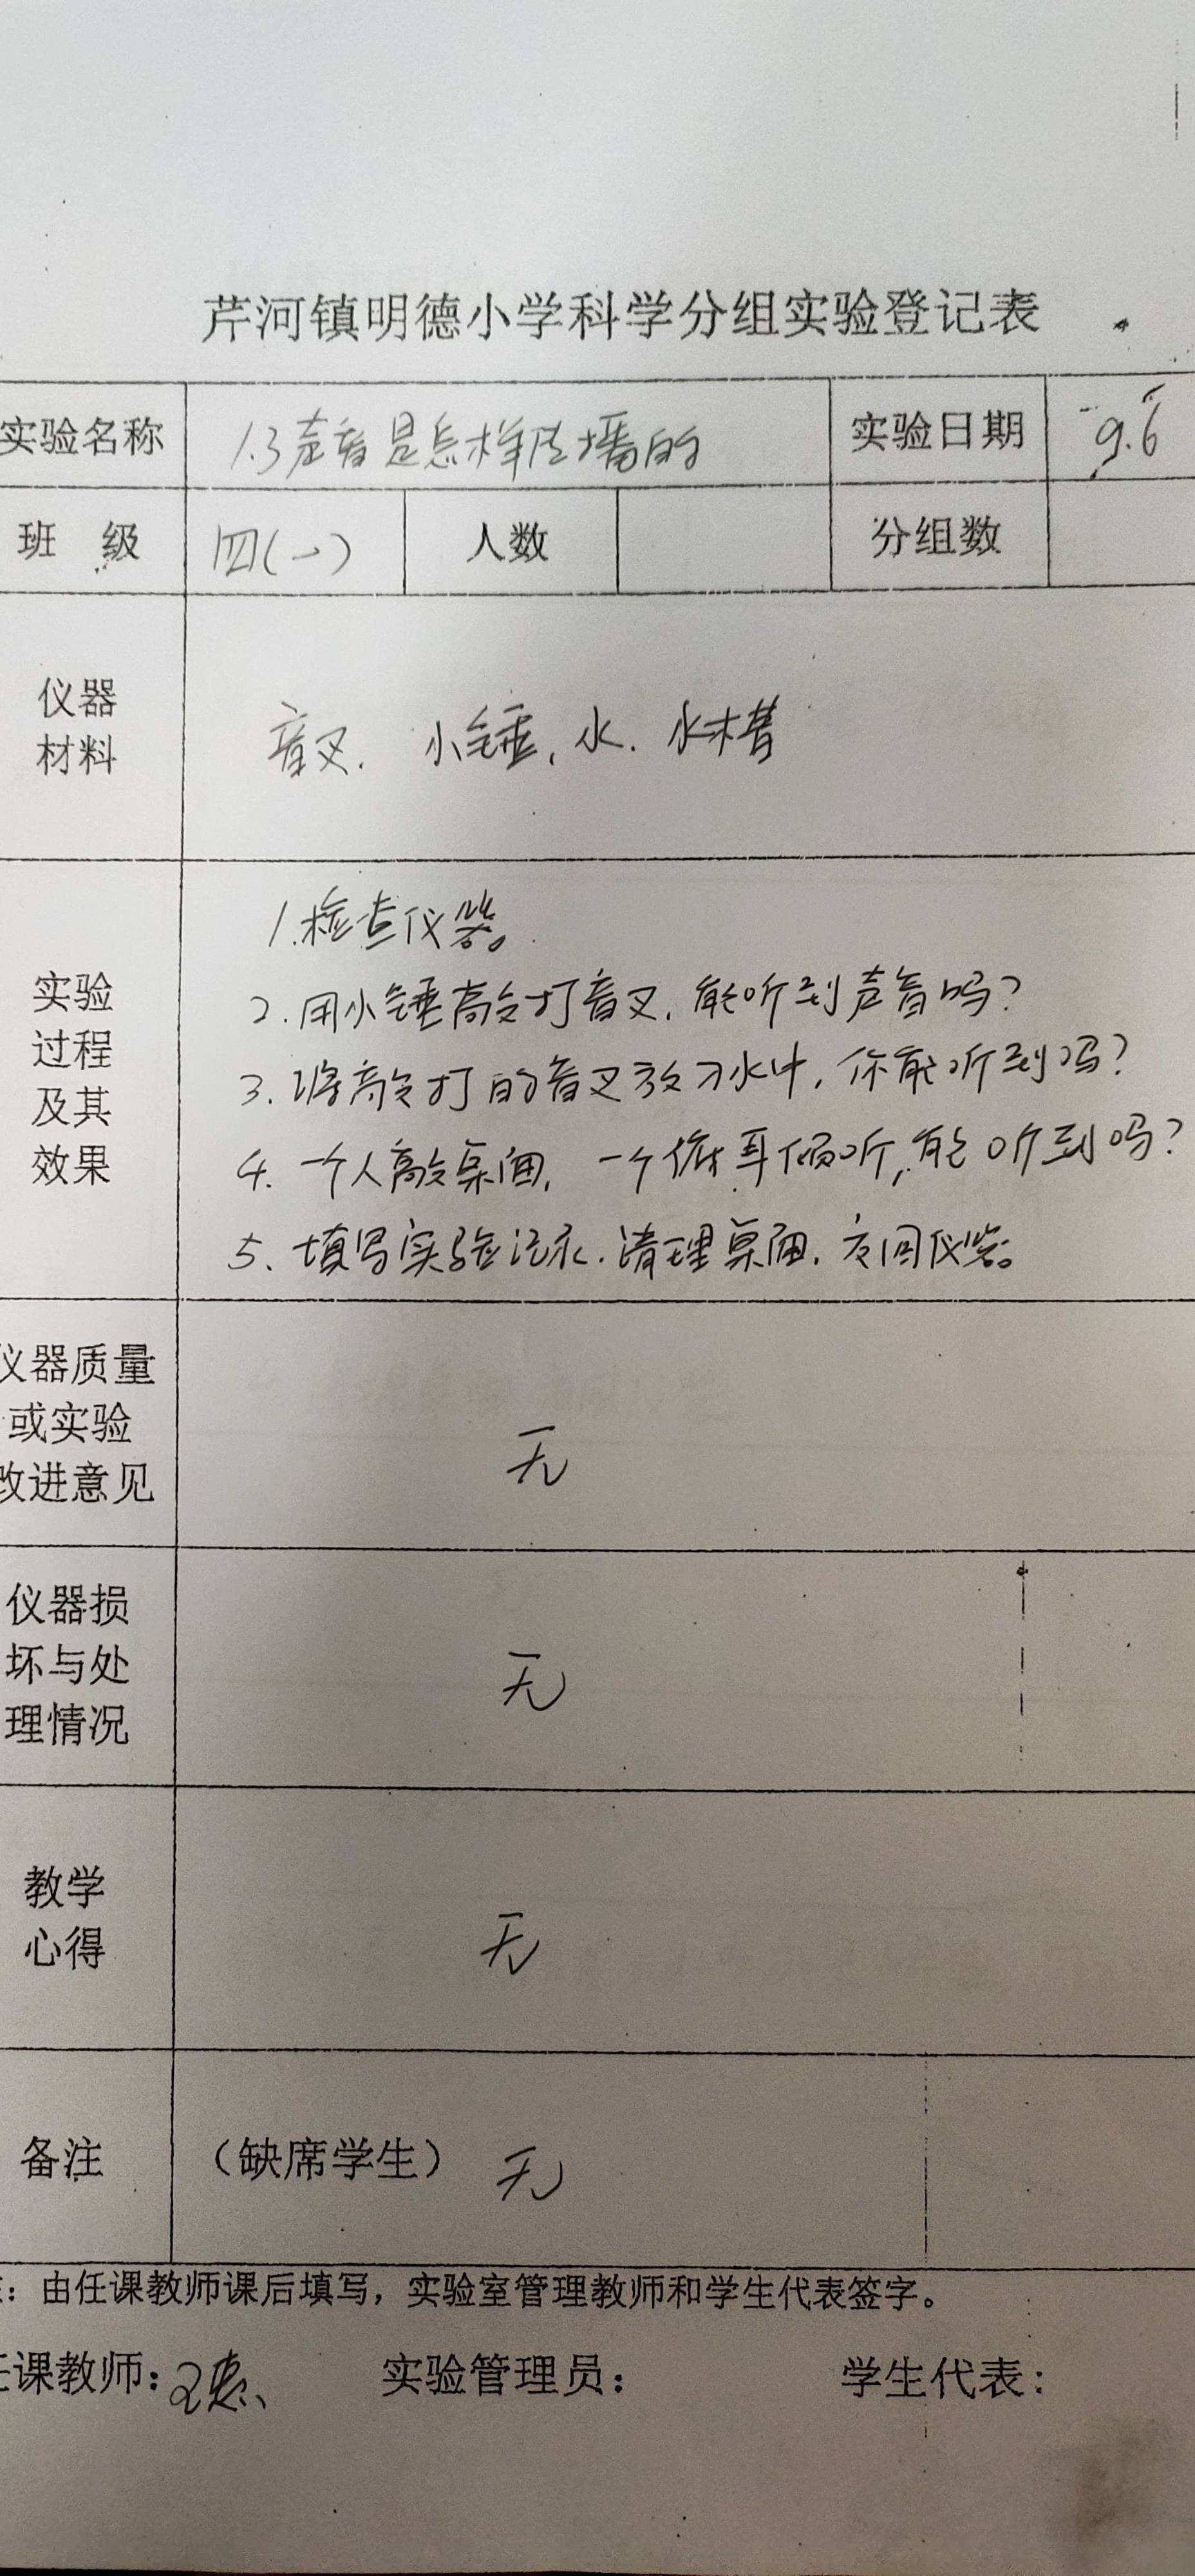 芹河镇明德小学科学分组实验登记表
实验名称 1.3声音是怎样传播的 实验日期 9.6
班 级 四(一) 人数 分组数
仪器
材料
音叉. 小锤, 水. 水槽
实验
过程
及其
效果
1.检查仪器。
2.用小锤敲打音叉,能听到声音吗?
3.将敲打的音叉放水中,你能听到吗?
4.一个人敲桌面,一个俯耳倾听,能听到吗?
5、填写实验记录.清理桌面.交回仪器。
仪器质量
或实验
改进意见
无
仪器损
坏与处
理情况
无
教学
心得
无
备注 （缺席学生） 无
：由任课教师课后填写，实验室管理教师和学生代表签字。
任课教师： 实验管理员： 学生代表：